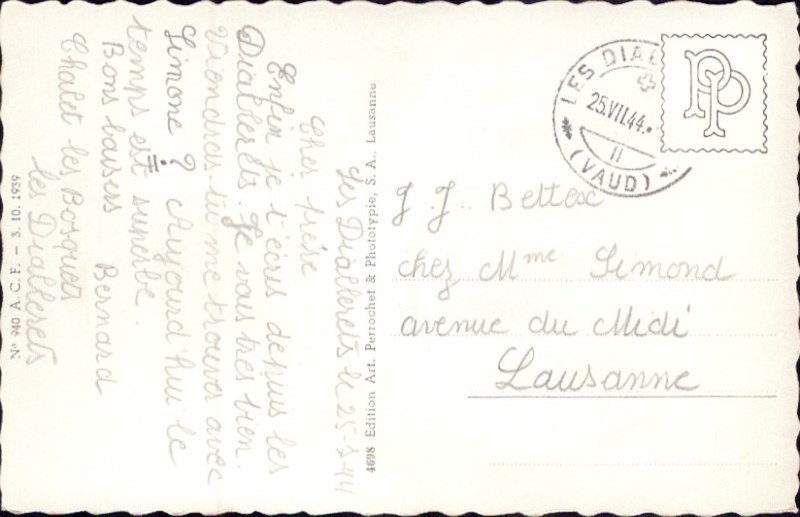 Les Diablerets le 25-7-44
Cher frère
Enfin je t'écris depuis les
Diablerets. Je vais très bien.
Viendras-tu me trouver avec
Simone ? Aujourd'hui le
temps est superbe.
Bons baisers Bernard
Chalet les Bosquets
les Diablerets
Nº 940 A.C.F. — 3. 10. 1939
4698 Edition Art. Perrochet & Phototypie, S. A., Lausanne
LES DIABLE
25.VII.44.
11
(VAUD)
PP
J. J. Bettex
chez Mme Simond
avenue du Midi
Lausanne